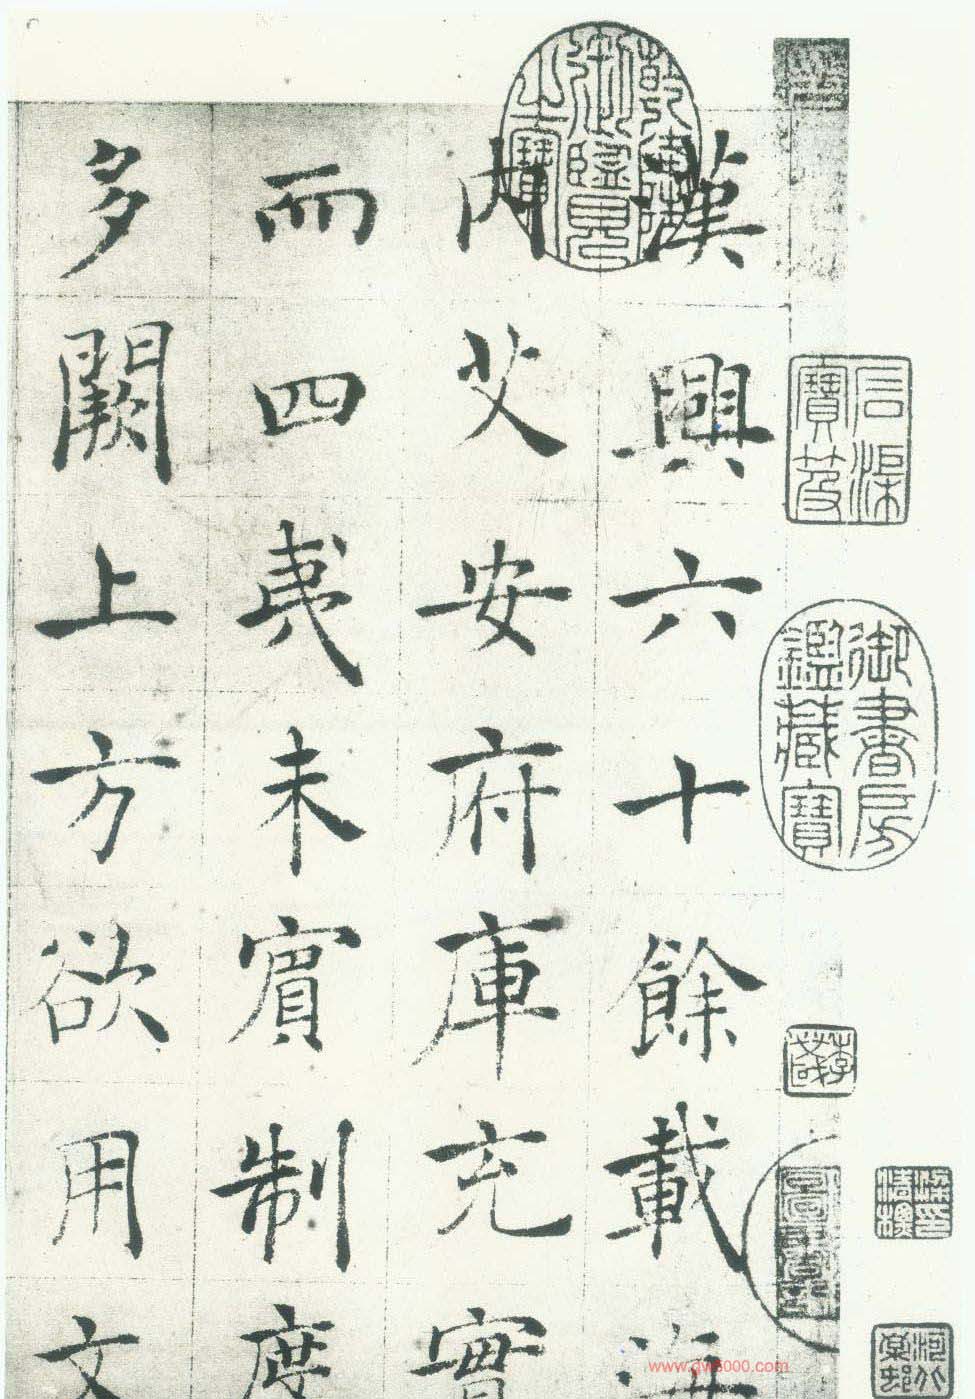 漢興六十餘載海
内艾安府庫充實
而四夷未賓制度
多闕上方欲用文
乾隆御覽之寶
石渠寶笈
御書房鑑藏寶
www.dw5000.com